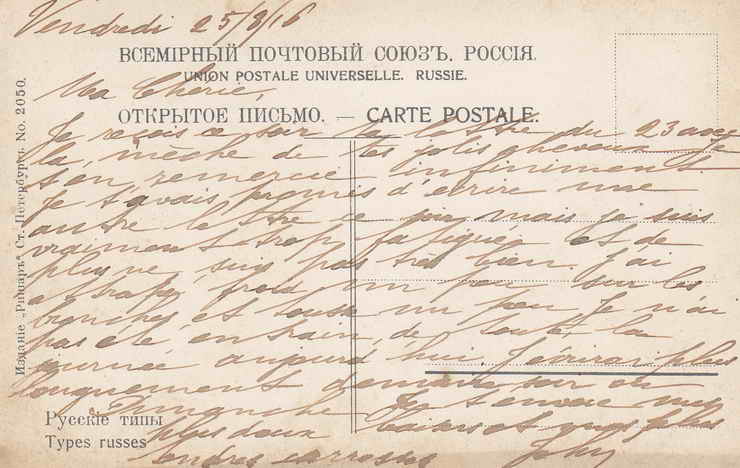 Vendredi 25/8/16
ВСЕМІРНЫЙ ПОЧТОВЫЙ СОЮЗЪ. РОССІЯ.
UNION POSTALE UNIVERSELLE. RUSSIE.
Ma Cherie,
ОТКРЫТОЕ ПИСЬМО. — CARTE POSTALE.
Je reçois ce soir ta lettre du 23 avec
la mèche de tes jolis cheveux je
t'en remercie infiniment.
Je t'avais promis d'écrire une
autre lettre ce soir mais je suis
vraiment trop fatigué et de
plus ne suis pas très bien. J'ai
attrapé froid un peu sur les
bronches et tousse un peu je n'ai
pas été en train de toute la
journée aujourd'hui. J'écrirai plus
longuement demain soir ou
Dimanche Je t'envoie mes
plus doux baisers et mes plus
tendres caresses John
Русскіе типы
Types russes
Изданіе „Ришаръ“ Ст. Петербургъ. No. 2050.